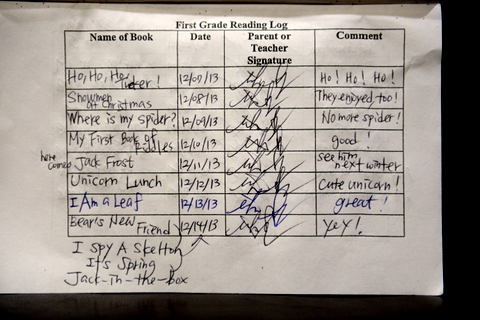 First Grade Reading Log
Name of Book Date Parent or Teacher Signature Comment
Ho, Ho, Ho, Tucker! 12/09/13 Ho! Ho! Ho!
Snowmen at christmas 12/08/13 They enjoyed, too!
Where is my spider? 12/09/13 No more spider!
My First Book of Riddles 12/10/13 good!
here comes Jack Frost 12/11/13 see him next winter
Unicorn Lunch 12/12/13 Cute unicorn!
I Am a Leaf 12/13/13 great!
Bear's New Friend 12/14/13 Yey!
I spy A Skelton
It's Spring
Jack-In-the-box